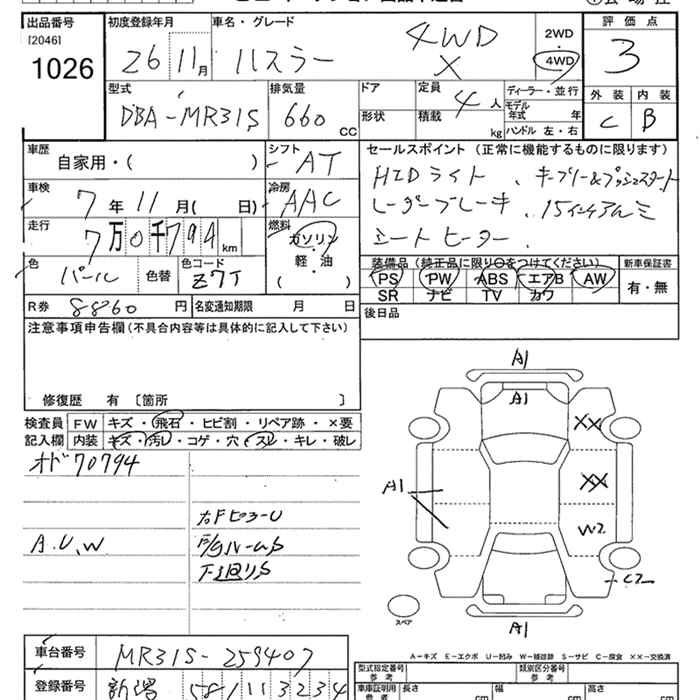 出品番号 初度登録年月 車名・グレード 評価点
[2046]
1026
26 11月 ハスラー 4WD X
2WD・4WD
3
型式 DBA-MR31S
排気量 660 CC
ドア 形状
定員 4人
積載 kg
ディーラー・並行
モデル年式 年
ハンドル 左・右
外装 内装
C B
車歴 自家用・( )
シフト AT
車検 7年11月( 日)
冷房 AAC
走行 7万0千794km
燃料 ガソリン・軽・油 ( )
色 パール 色替
色コード Z7T
R券 8860円
名変通知期限 月 日
セールスポイント (正常に機能するものに限ります)
HIDライト、キーフリー&プッシュスタート
レーダーブレーキ、15インチアルミ
シートヒーター、
装備品 (純正品に限り○をつけてください)
PS PW ABS エアB AW
SR ナビ TV カワ
新車保証書
有・無
後日品
注意事項申告欄(不具合内容等は具体的に記入して下さい)
修復歴 有〔箇所 〕
検査員記入欄
FW キズ・飛石・ヒビ割・リペア跡・×要
内装 キズ・汚れ・コゲ・穴・スレ・キレ・破レ
オド70794
A.U.W
下廻りS
A1
A1
XX
XX
A1
W2
C2
A1
スペア
A-キズ E-エクボ U-凹み W-補修跡 S-サビ C-腐食 XX-交換済
車台番号 MR31S-259407
登録番号 新潟 581 い 3234
型式指定番号 参考
類別区分番号 参考
車庫証明用 参考
長さ cm
幅 cm
高さ cm